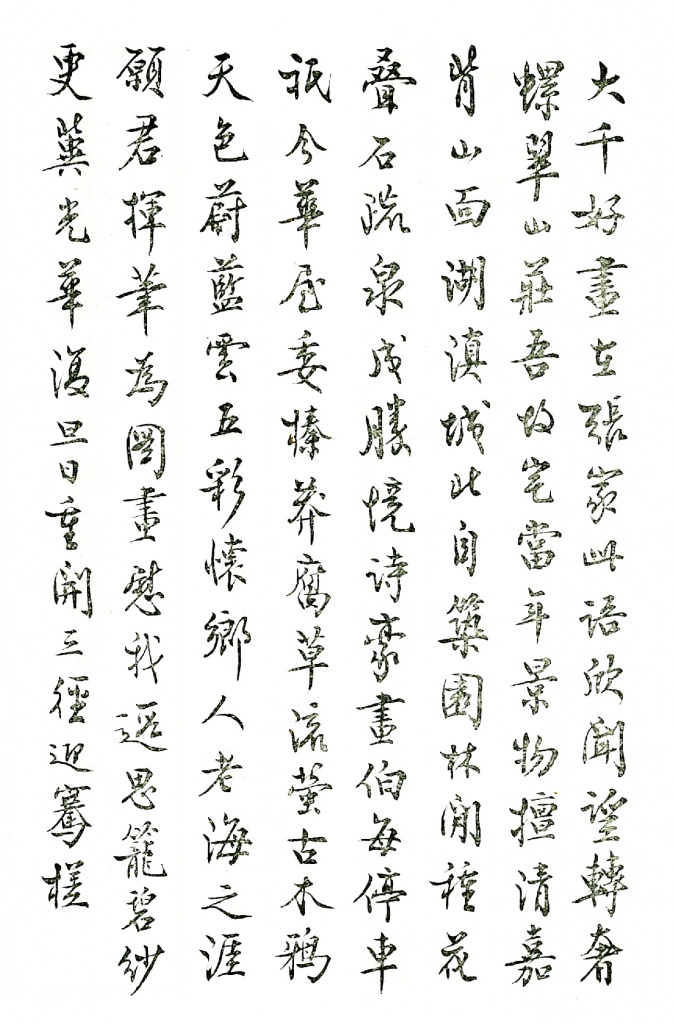 大千好畫在張家此語欣聞望轉奢
螺翠山莊吾故宅當年景物擅清嘉
背山面湖滇城北自築園林閒種花
疊石疏泉成勝境詩豪畫伯每停車
祇今華屋委榛莽腐草流螢古木鴉
天色蔚藍雲五彩懷鄉人老海之涯
願君揮筆為圖畫慰我遐思籠碧紗
更冀光華復旦日重開三徑迎騫槎